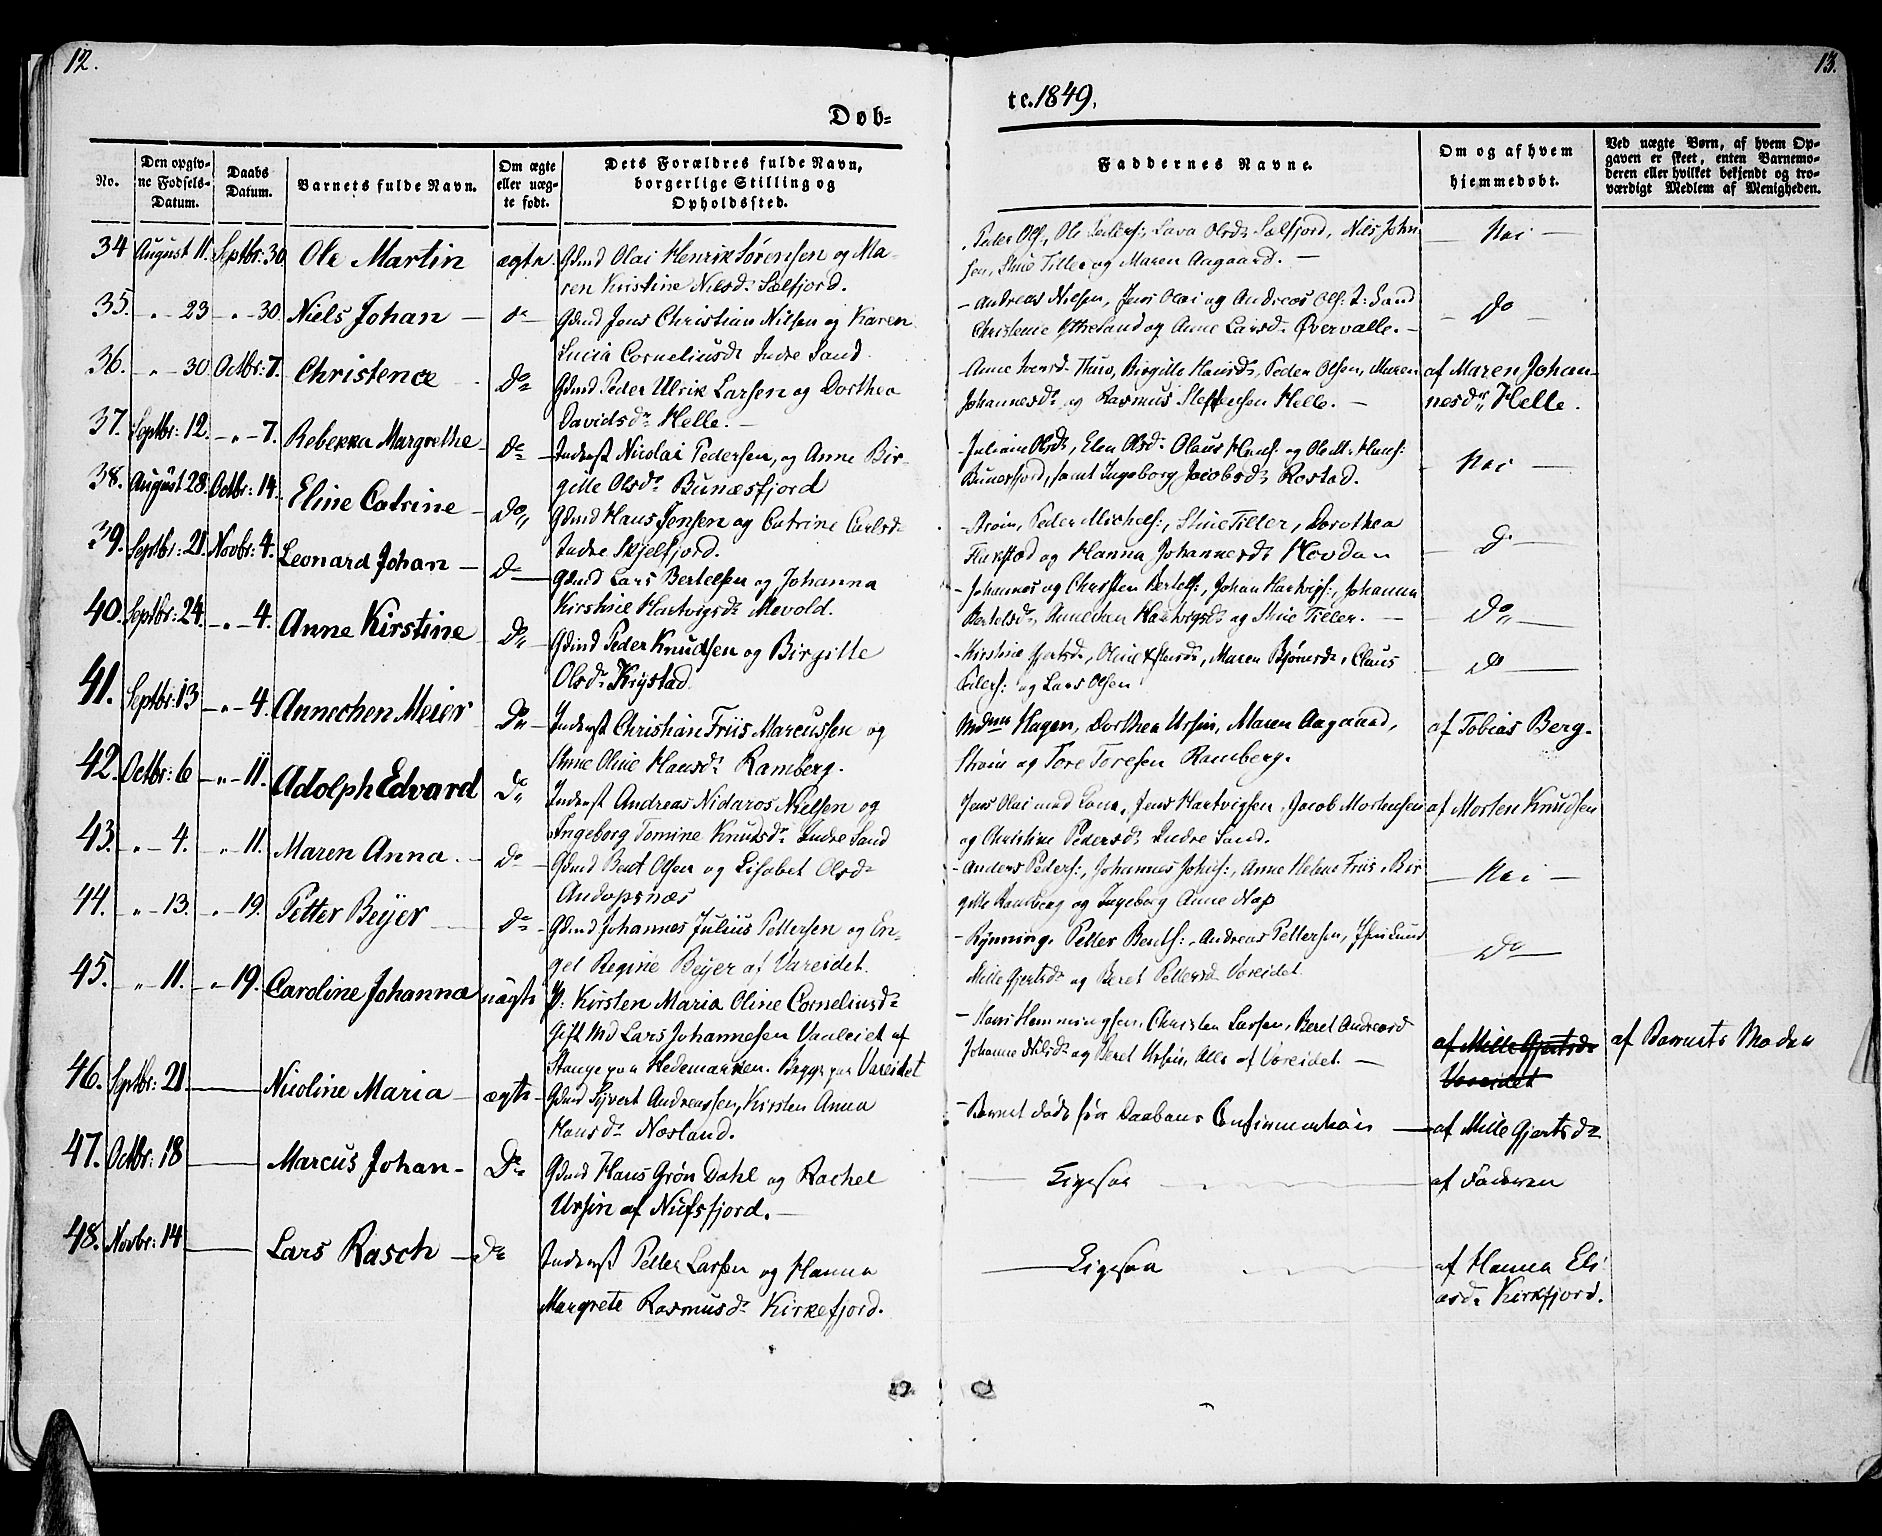 12.
13.
Døb-
te. 1849.
No.
Den opgiv-
ne Fødsels-
Datum.
Daabs
Datum.
Barnets fulde Navn.
Om ægte
eller uæg-
te født.
Dets Forældres fulde Navn,
borgerlige Stilling og
Opholdssted.
Faddernes Navne.
Om og af hvem
hjemmedøbt.
Ved uægte Børn, af hvem Op-
gaven er skeet, enten Barnemo-
deren eller hvilket bekjendt og tro-
værdigt Medlem af Menigheden.
34 August 11. Septbr: 30 Ole Martin ægte Gdmd Olai Henrik Sørensen og Ma-
ren Kirstine Nilsd: Sælfjord.
Peder Ols:, Ole Peders:, Lava Olsd: Sælfjord, Nils John
sen, Stine Tiller og Maren Aagaard. —
Nei
35. " - 23 " - 30. Niels Johan — do Gdmd Jens Christian Nilsen og Karen
Lucia Corneliusd: Indre Sand.
- Andreas Nielsen, Jens Olai og Andreas Ols: I: Sand
Christine Yttresand og Anne Larsd: Øvervalle. -
Do
36. " - 30 Octbr: 7. Christence Do Gdmd Peder Ulrik Larsen og Dorthea
Davidsd: Helle. —
Anne Iversd: , Birgitte Hansd:, Peder Olsen, Maren
Johannesd: og Rasmus Steffensen Helle. —
af Maren Johan-
nesd: Helle.
37. Septbr: 12. - " - 7. Rebekka Margrethe Do Inderst Nicolai Pedersen, og Anne Bir-
gitte Olsd: Bunesfjord
- Juliane Olsd:, Elen Olsd: Olaus Hans: og Ole M. Hans:
Bunesfjord, samt Ingeborg Jacobsd: Rostad.
Nei
38. August 28. Octbr: 14. Eline Catrine Do Gdmd Hans Jensen og Catrine Carlsd:
Indre Skjelfjord.
- Strøm, Peder Michels:, Stine Tiller, Dorothea
Flakstad og Hanna Johannesd: Hovdan
Do
39. Septbr: 21. Novbr: 4. Leonard Johan — Do Gdmd Lars Bertelsen og Johanna
Kirstine Hartvigsd: Mevold.
- Johannes og Christen Bertels:, Johan Hartvigs:, Johanna
Bertelsd:, Hartvigsd: og Stine Tiller. —
Do
40. Septbr: 24. - " - 4. Anne Kirstine Do Gdmd Peder Knudsen og Birgitte
Olsd: Krystad.
- Kirstine Gjertsd:, Oline , Maren Bjørnsd:, Claus
Peders: og Lars Olsen
Do
41. Septbr: 13 - " - 4. Annechen Meier Do Inderst Christian Friis Marcussen og
Stine Oline Hansd: Ramberg.
Mdme Hagen, Dorthea Ursin, Maren Aagaard,
Strøm og Tore Toresen Ramberg.
af Tobias Berg.
42. Octbr: 6 - " - 11. Adolph Edvard Do Inderst Andreas Nidaros Nielsen og
Ingeborg Tomine Knudsd: Indre Sand
Jens Olai med Kone, Jens Hartvigsen, Jacob Mortensen
og Christine Pedersd: Indre Sand.
af Morten Knudsen
43. " - 4. " - 11. Maren Anna. Do Gdmd Bent Olsen og Lisabet Olsd:
Andopsnæs
- Anders Peders:, Johannes Johs:, Anne Helene Friis, Bir
gitte Ramberg og Ingeborg Anne Nap
Nei
44. " - 13. " - 19. Petter Beyer Do Gdmd Johannes Julius Pettersen og En-
gel Regine Beyer af Vareidet.
- Rynning, Petter Bents:, Andreas Pettersen, Lund
Mille Gjertsd: og Beret Pettersd: Vareidet
Do
45. " - 11. " - 19. Caroline Johanna uægte P: Kirsten Maria Oline Corneliusd:
Gift Md Lars Johannesen af
Stange paa Hedemarken. Begge paa Vareidet
- Hans Hemmingsen, Christen Larsen, Beret Andreasd:
Johanne Nilsd: og Beret Ursin, Alle af Vareidet. —
af Mille Gjertsd:
Vareidet
af Barnets Moder
46. Septbr: 21. Nicoline Maria ægte Gdmd Syvert Andreassen, Kirsten Anna
Hansd: Nesland.
- Barnet døde før Daabens Confirmation
af Mille Gjertsd:
47. Octbr: 18 Marcus Johan - Do Gdmd Hans Grøn Dahl og Rachel
Ursin af Nufsfjord. —
Ligesaa
af Faderen
48. Novbr: 14 Lars Rasch Do Inderst Petter Larsen og Hanna
Margrete Rasmusd: Kirkefjord.
Ligesaa
af Hanna Eli
asd: Kirkfjord.